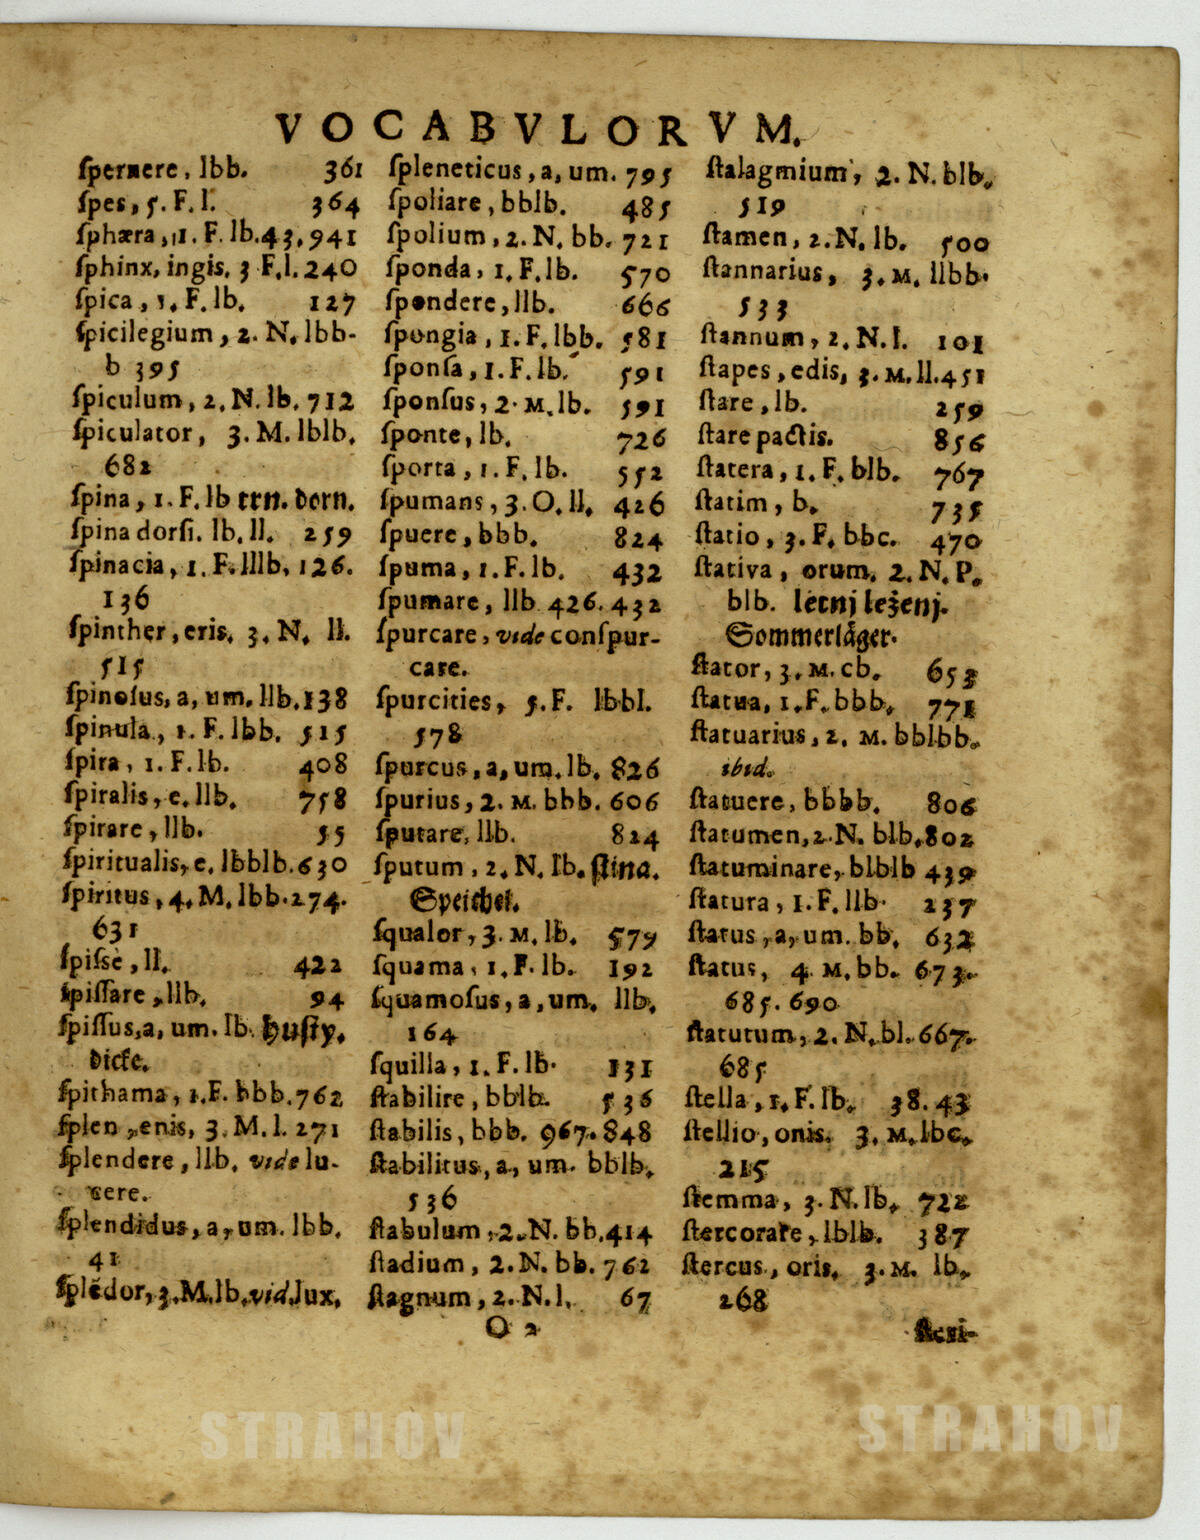 VOCABVLORVM.
ſpernere, lbb. 361
ſpes, 5. F. l. 364
ſphæra, 1. F. lb. 43. 941
ſphinx, ingis. 3 F. l. 240
ſpica, 1. F. lb. 127
ſpicilegium, 2. N. lbb-
b 395
ſpiculum, 2. N. lb. 712
ſpiculator, 3. M. lblb.
682
ſpina, 1. F. lb trn. dorn.
ſpina dorſi. lb. ll. 259
ſpinacia, 1. F. lllb. 126.
136
ſpinther, eris. 3. N. ll.
515
ſpinoſus, a, um. llb. 138
ſpinula, 1. F. lbb. 515
ſpira, 1. F. lb. 408
ſpiralis, e. llb. 758
ſpirare, llb. 55
ſpiritualis, e. lbblb. 630
ſpiritus, 4. M. lbb. 274.
631
ſpiſsè, ll. 422
ſpiſſare, llb. 94
ſpiſſus, a, um. lb. huſty.
dicke.
ſpithama, 1. F. bbb. 762
ſplen, enis, 3. M. l. 271
ſplendere, llb. vide lu-
cere.
ſplendidus, a, um. lbb.
41
ſplēdor, 3. M. lb. vid. lux.
ſpleneticus, a, um. 795
ſpoliare, bblb. 485
ſpolium, 2. N. bb. 721
ſponda, 1. F. lb. 570
ſpondere, llb. 666
ſpongia, 1. F. lbb. 581
ſponſa, 1. F. lb. 591
ſponſus, 2. M. lb. 591
ſponte, lb. 726
ſporta, 1. F. lb. 552
ſpumans, 3. O. ll. 426
ſpuere, bbb. 824
ſpuma, 1. F. lb. 432
ſpumare, llb 426. 432
ſpurcare, vide conſpur-
care.
ſpurcities, 5. F. lbbl.
578
ſpurcus, a, um. lb. 826
ſpurius, 2. M. bbb. 606
ſputare, llb. 824
ſputum, 2. N. lb. ſlina.
Speichel.
ſqualor, 3. M. lb. 579
ſquama, 1. F. lb. 192
ſquamoſus, a, um. llb.
164
ſquilla, 1. F. lb. 131
ſtabilire, bblb. 536
ſtabilis, bbb. 967. 848
ſtabilitus, a, um. bblb.
536
ſtabulum, 2. N. bb. 414
ſtadium, 2. N. bb. 762
ſtagnum, 2. N. l. 67
O 2
ſtalagmium, 2. N. blb.
519
ſtamen, 2. N. lb. 500
ſtannarius, 3. M. llbb.
533
ſtannum, 2. N. l. 101
ſtapes, edis, 3. M. ll. 451
ſtare, lb. 259
ſtare pactis. 856
ſtatera, 1. F. blb. 767
ſtatim, b. 735
ſtatio, 3. F. bbc. 470
ſtativa, orum. 2. N. P.
blb. letnj leženj.
Sommerläger.
ſtator, 3. M. cb. 653
ſtatua, 1. F. bbb. 771
ſtatuarius, 2. M. bblbb.
ibid.
ſtatuere, bbbb. 806
ſtatumen, 2. N. blb. 802
ſtatuminare, blblb 439
ſtatura, 1. F. llb. 237
ſtatus, a, um. bb. 632
ſtatus, 4. M. bb. 673.
685. 690
ſtatutum, 2. N. bl. 667.
685
ſtella, 1. F. lb. 38. 43
ſtellio, onis. 3. M. lbc.
215
ſtemma, 3. N. lb. 722
ſtercorare, lblb. 387
ſtercus, oris. 3. M. lb.
268
ſteri-
STRAHOV
STRAHOV